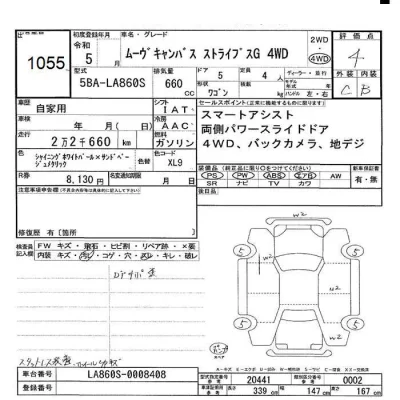 出品番号
1055
初度登録年月
令和
5 月
車名・グレード
ムーヴキャンバス ストライプスG 4WD
2WD
4WD
評価点
4
型式
5BA-LA860S
排気量
660 cc
ドア
5
形状
ワゴン
定員
4 人
積載
kg
ディーラー・並行
年式
ハンドル 左・右
外装
内装
C
B
車歴
自家用
車検
年 月( 日)
走行
2万2千660 km
色
シャイニングホワイトパール×サンドベージュメタリック
色替
R券
8,130 円
シフト
IAT
冷房
AAC
燃料
ガソリン
色コード
XL9
名変期限
月 日
セールスポイント(正常に機能するものに限ります)
スマートアシスト
両側パワースライドドア
4WD、バックカメラ、地デジ
装備品(純正品に限り○をつけてください)
PS PW ABS エアB AW
SR ナビ TV 革
新車保証書
有・無
注意事項申告欄
修復歴 有 [箇所 ]
検査員記入欄
FW キズ・飛石・ヒビ割・リペア跡・×要
内装 キズ・コゲ・穴・スレ・キレ・破レ
W2
W2
W2
W2
5
5
5
5
車台番号
LA860S-0008408
登録番号
型式指定番号
参考
20441
類別区分番号
参考
0002
車体寸法
参考
長さ 339 cm
幅 147 cm
高さ 167 cm